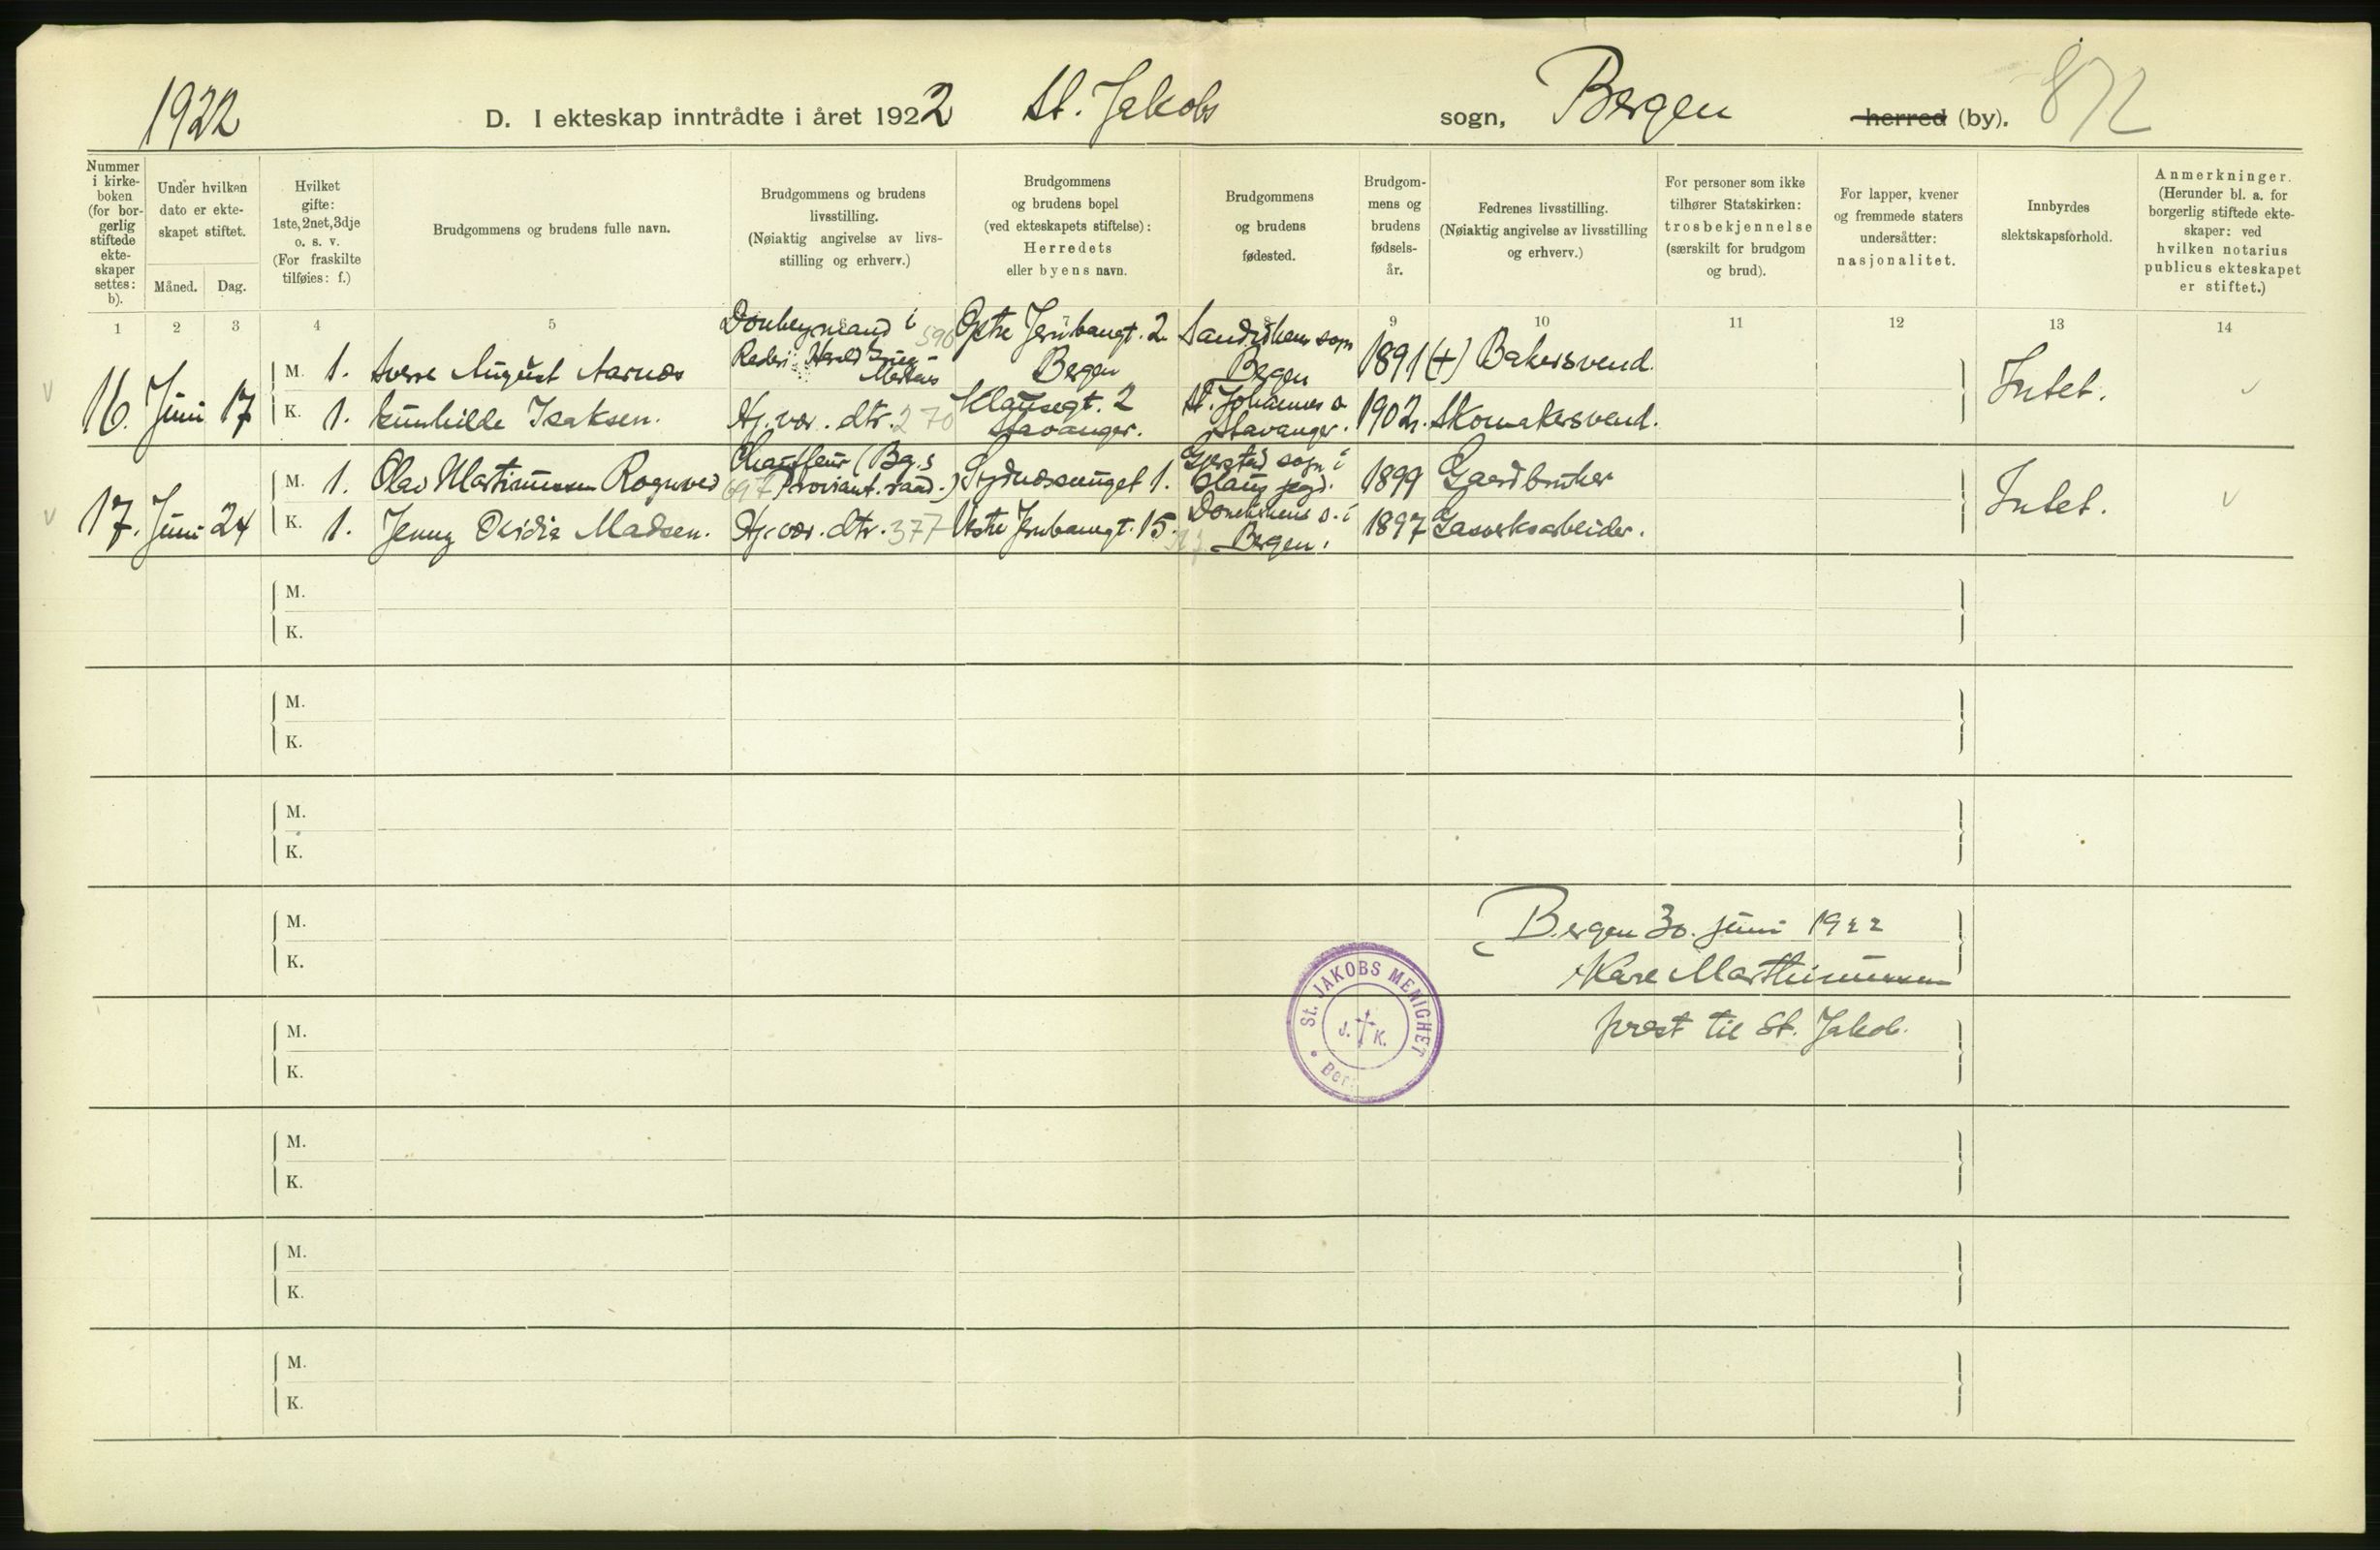 1922 D. I ekteskap inntrådte i året 1922 St. Jakobs sogn, Bergen herred (by). 872
Nummer i kirke-boken (for bor-gerlig stiftede ekte-skaper settes: b).
Under hvilken dato er ekte-skapet stiftet.
Måned. Dag.
Hvilket gifte: 1ste, 2net, 3dje o. s. v. (For fraskilte tilføies: f.)
Brudgommens og brudens fulle navn.
Brudgommens og brudens livsstilling. (Nøiaktig angivelse av livs-stilling og erhverv.)
Brudgommens og brudens bopel (ved ekteskapets stiftelse): Herredets eller byens navn.
Brudgommens og brudens fødested.
Brudgom-mens og brudens fødsels-år.
Fedrenes livsstilling. (Nøiaktig angivelse av livsstilling og erhverv.)
For personer som ikke tilhører Statskirken: trosbekjennelse (særskilt for brudgom og brud).
For lapper, kvener og fremmede staters undersåtter: nasjonalitet.
Innbyrdes slektskapsforhold.
Anmerkninger. (Herunder bl. a. for borgerlig stiftede ekte-skaper: ved hvilken notarius publicus ekteskapet er stiftet.)
1 2 3 4 5 7 8 9 10 11 12 13 14
16. Juni 17 M. 1. Sverre August Aarnæs Donkeymand i Rederi 590 Østre Jernbanegt. 2 Bergen Sandvikens sogn Bergen 1891 (+) Bakersvend. Intet.
K. 1. Gunhilde Isaksen. Hj. vær. dtr. 270 Klausegt. 2 Stavanger. St. Johannes s. Stavanger. 1902. Skomakersvend.
17. Juni 24 M. 1. Olav Martinussen Rognved Chauffeur (Bg.s Proviant. raad.) 697 Sydnessmuget 1. Gjerstad sogn i Haus pgd. 1899 Gaardbruker Intet.
K. 1. Jenny Ovidia Madsen. Hj. vær. dtr. 377 Vestre Jernbanegt. 15. Domkirkens s. i Bergen. 1897 Gasverksarbeider.
M.
K.
M.
K.
M.
K.
M.
K.
Bergen 30. juni 1922
Kåre Marthinussen
prest til St. Jakob.
St. JAKOBS MENIGHET
J. K.
Ber
M.
K.
M.
K.
M.
K.
M.
K.